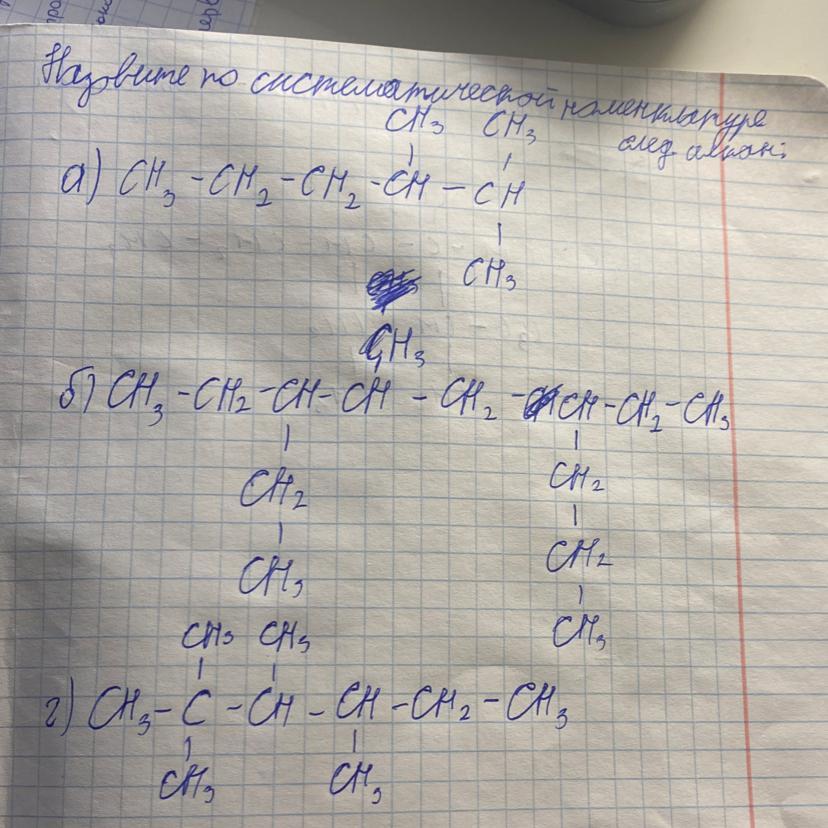 Назовите по систематической номенклатуре
след алкан:
CH3 CH3
а) CH3 - CH2 - CH2 - CH - CH
CH3
CH3
б) CH3 - CH2 - CH - CH - CH2 - CH - CH2 - CH3
CH2 CH2
CH3 CH2
CH3 CH3 CH3
г) CH3 - C - CH - CH - CH2 - CH3
CH3 CH3